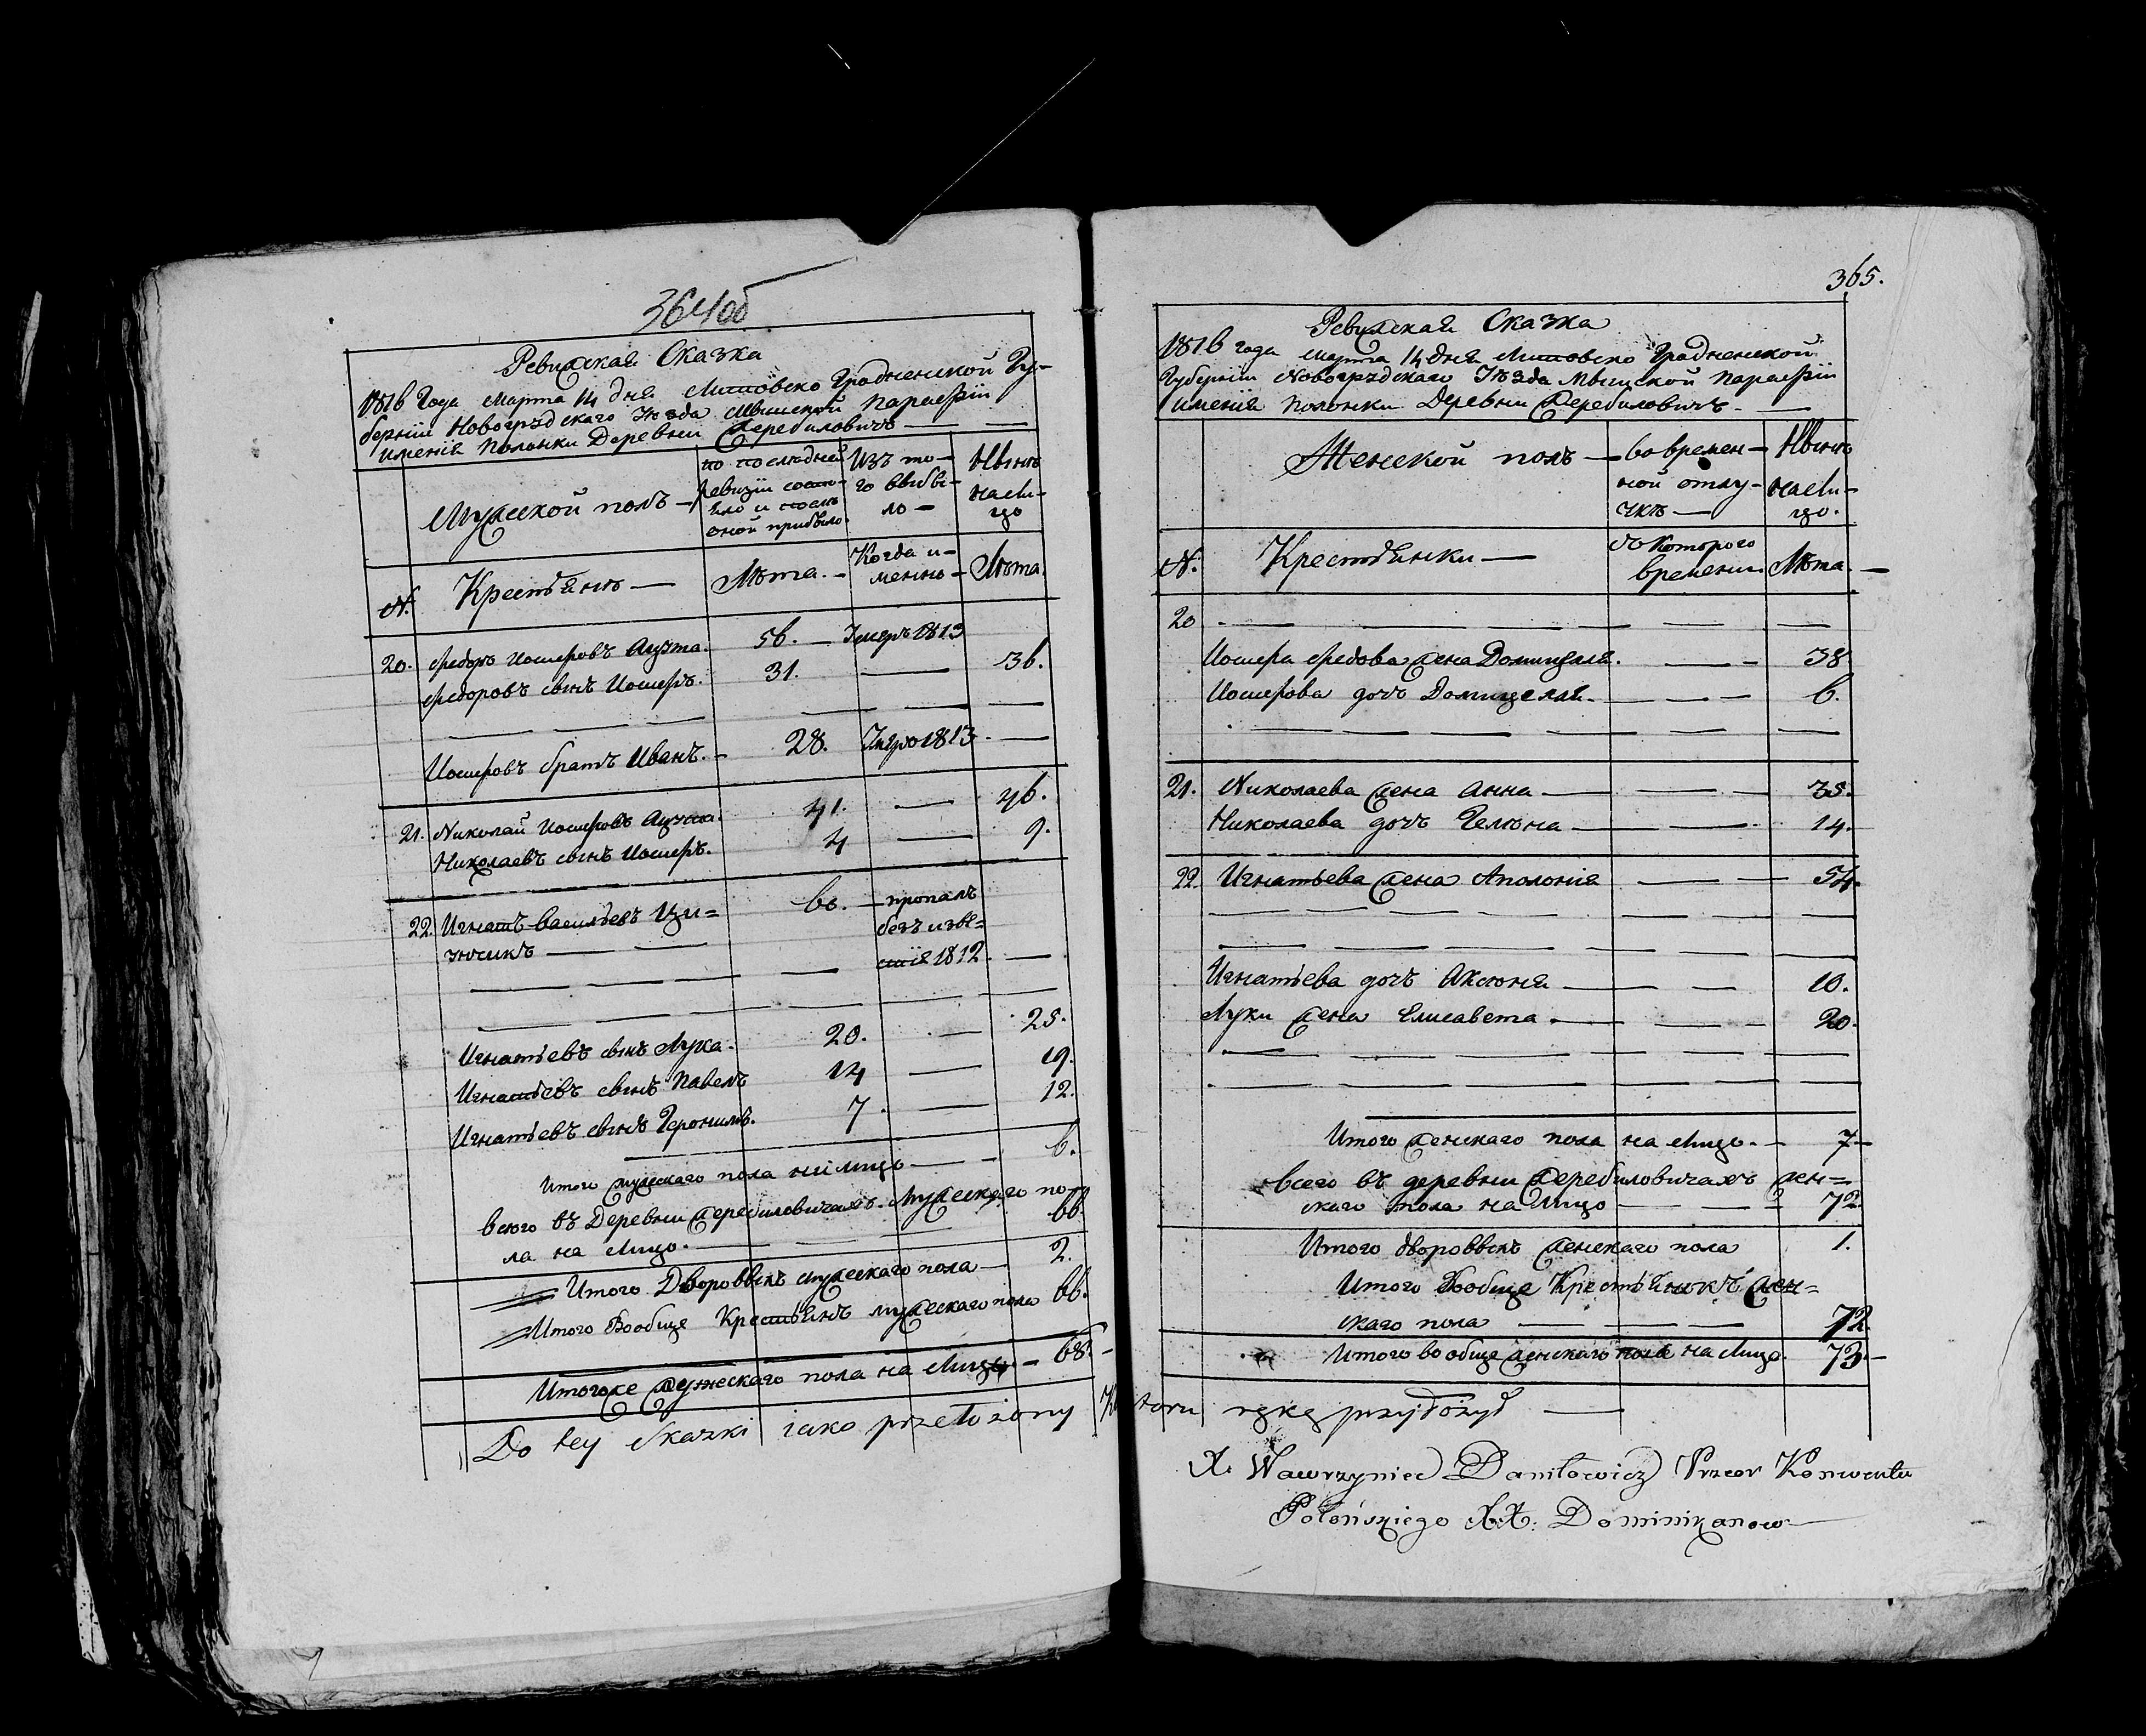 364об
Ревизская Сказка
1816 Года Марта 14 дня Литовско Гродненской Гу-
берніи Новогрудскаго Уезда Мышской Парафіи
имения Полонки Деревни Жеребиловичъ — —
Мужской полъ —
по последней
ревизіи состо-
яло и после
оной прибыло.
Изъ то-
го выбы-
ло —
Ныне
на ли-
цо
№. Крестьяне — Лета. — Когда и-
менно — Лета.
20. Федоръ Иосифовъ Ацута. 56. — Умеръ 1813
Федоровъ сынъ Иосифъ. 31. — 36.
Иосифовъ братъ Иванъ. — 28. 1813. —
21. Николай Иосифовъ Ацута. 41. — 46.
Николаевъ сынъ Иосифъ. 4 — 9.
22. Игнатъ Васильевъ Ци= 60. — пропалъ
безъ изве=
стія 1812. —
Игнатьевъ сынъ Лука. 20. — 25.
Игнатьевъ сынъ Павелъ 14 — 19.
Игнатьевъ сынъ Геронимъ. 7. — 12.
Итого мужскаго пола на лицо — — 6.
Всего въ Деревни Жеребиловичахъ Мужскаго по-
ла на лицо. — — — 66.
Итого Дворовыхъ мужескаго пола — 2.
Итого Вообще Крестьянъ мужескаго пола 66.
Итогоже мужескаго пола на лицо — 68. —
Do tey skazki iako przełożony
365.
Ревизская Сказка
1816 года Марта 14 дня Литовско Гродненской
Губерніи Новогрудскаго Уезда Мышской Парафіи
имения Полонки Деревни Жеребиловичъ — —
Женской полъ —
во времен-
ной отлу-
чкъ —
Ныне
на ли-
цо.
№. Крестьянки — съ которого
времени Лета. —
20 — — — — — —
Иосифа Федова жена Домицеля. — — 38
Иосифова дочь Домицеля. — — 6.
21. Николаева жена Анна — — — 35.
Николаева дочь Гелена — — — 14.
22. Игнатьева жена Аполонія — — 54.
Игнатьева дочь Аксюня — — — 10.
Луки жена Елисавета. — — — 20.
Итого женскаго пола на лицо. — 7 —
Всего въ деревни Жеребиловичахъ жен=
скаго пола на лицо — — 72
Итого дворовыхъ женскаго пола 1.
Итого Вообще Крестьянокъ жен=
скаго пола — — — 72.
Итого вообще женскаго пола на лицо. 73. —
rękę przyłożył —
X. Wawrzyniec Daniłowicz Przeor Konwentu
Połońskiego XX: Dominikanow —